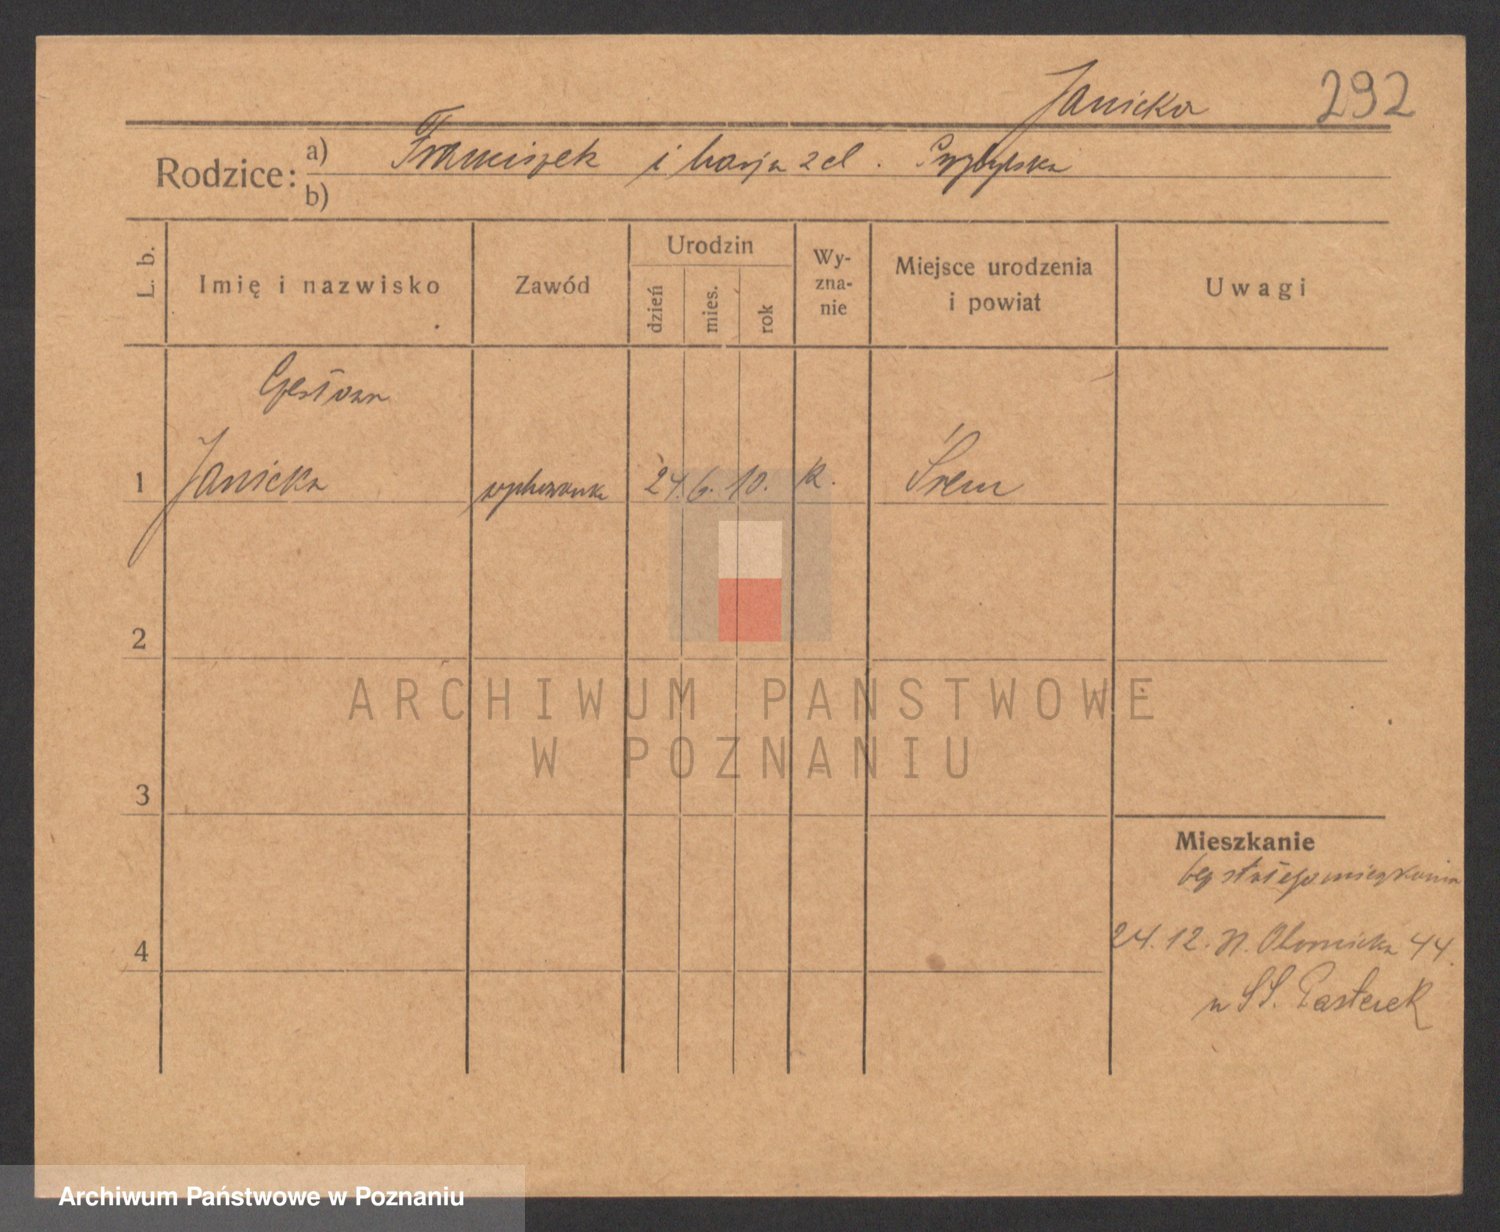 Janicka 292
Rodzice: a) Franciszek i Marja zd. Przybylska
b)
L. b. Imię i nazwisko Zawód Urodzin dzień mies. rok Wyznanie Miejsce urodzenia i powiat Uwagi
1 Janicka 24. 6. 10. k. Śrem
2
ARCHIWUM PANSTWOWE
W POZNANIU
3
Mieszkanie
bez stałego mieszkania
4
24. 12. 44.
u SS. Pasterek
Archiwum Państwowe w Poznaniu